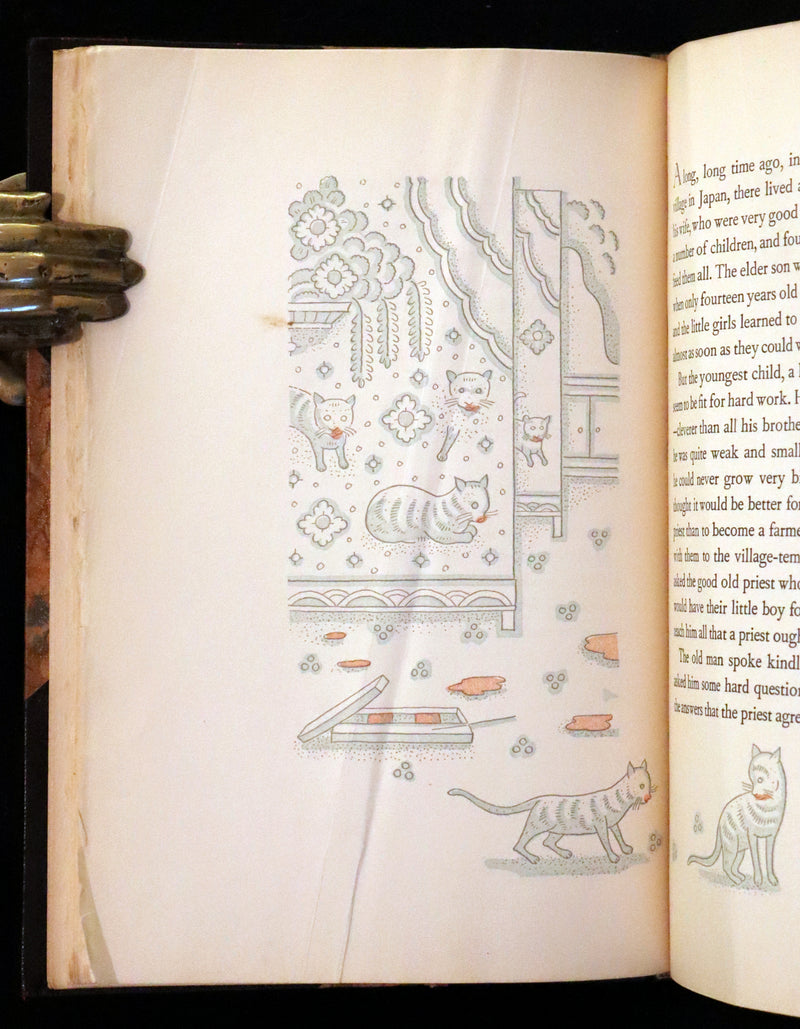 A long, long time ago, in
village in Japan, there lived a
his wife, who were very good
a number of children, and fou
feed them all. The elder son w
when only fourteen years old
and the little girls learned to
almost as soon as they could w
But the youngest child, a l
seem to be fit for hard work. H
–cleverer than all his brothe
he was quite weak and small
he could never grow very bi
thought it would be better for
priest than to become a farme
with them to the village-tem
asked the good old priest who
would have their little boy fo
teach him all that a priest ough
The old man spoke kindl
asked him some hard question
the answers that the priest agre